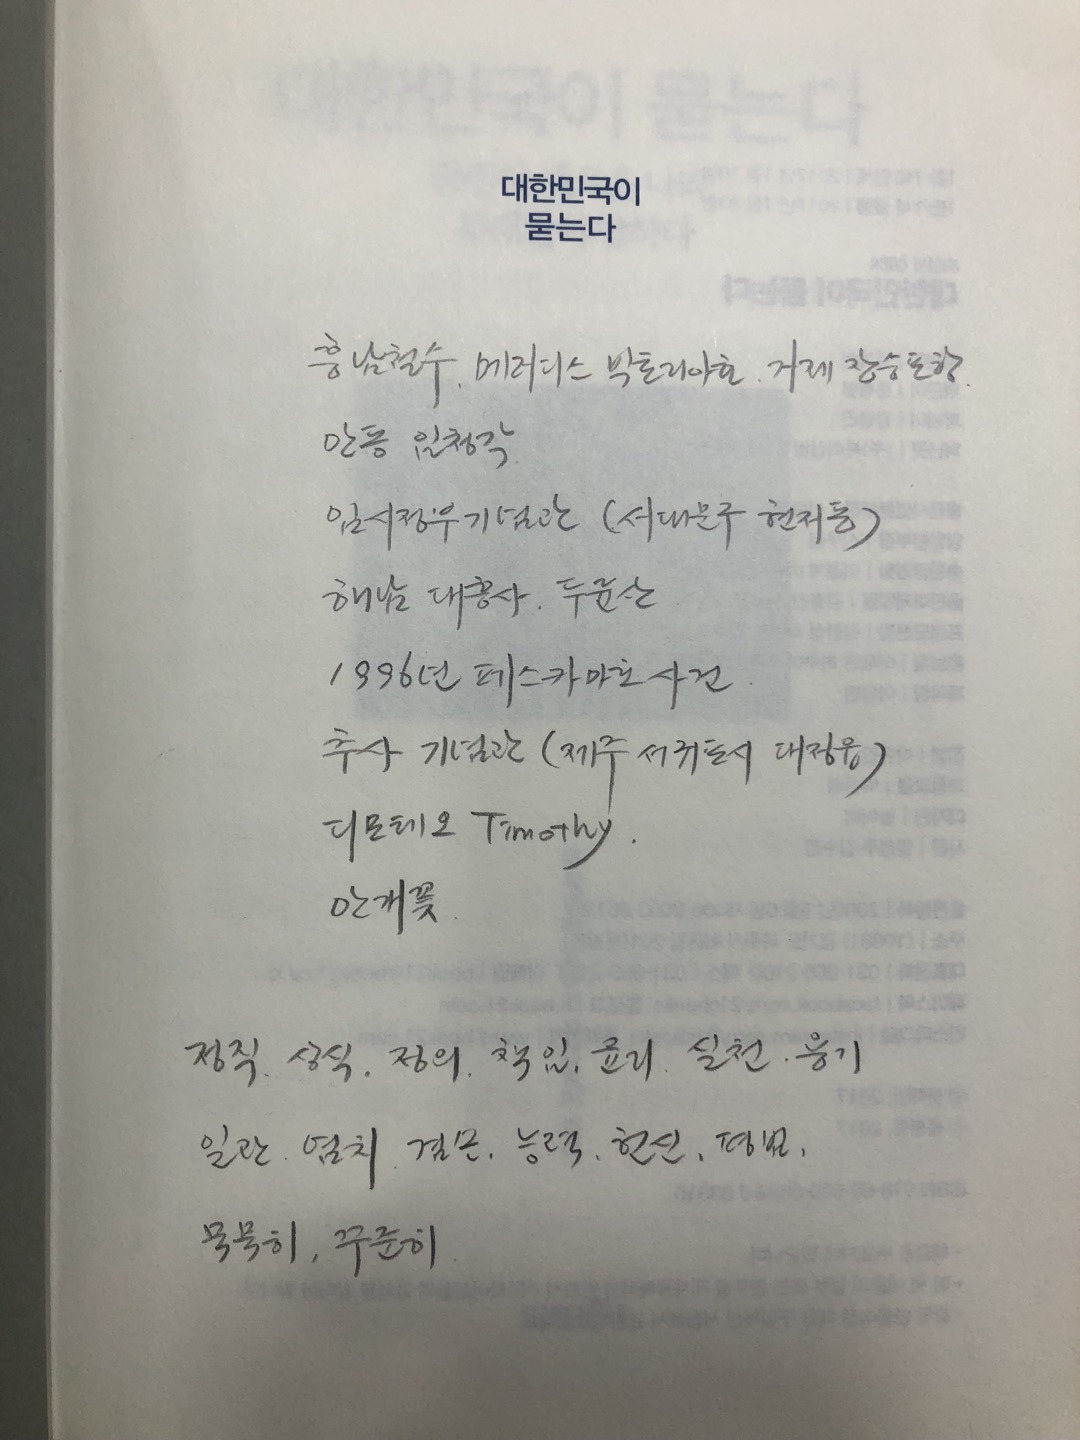 대한민국이
묻는다
흥남철수. 메러디스 빅토리아호. 거제 장승포항.
안동 임청각
임시정부기념관 (서대문구 현저동)
해남 대흥사. 두륜산
1996년 페스카마호사건
추사 기념관 (제주 서귀포시 대정읍)
디모테오 Timothy.
안개꽃.
정직. 상식. 정의. 책임. 윤리. 실천. 용기
일관. 염치. 겸문. 능력. 헌신. 평범.
묵묵히, 꾸준히.